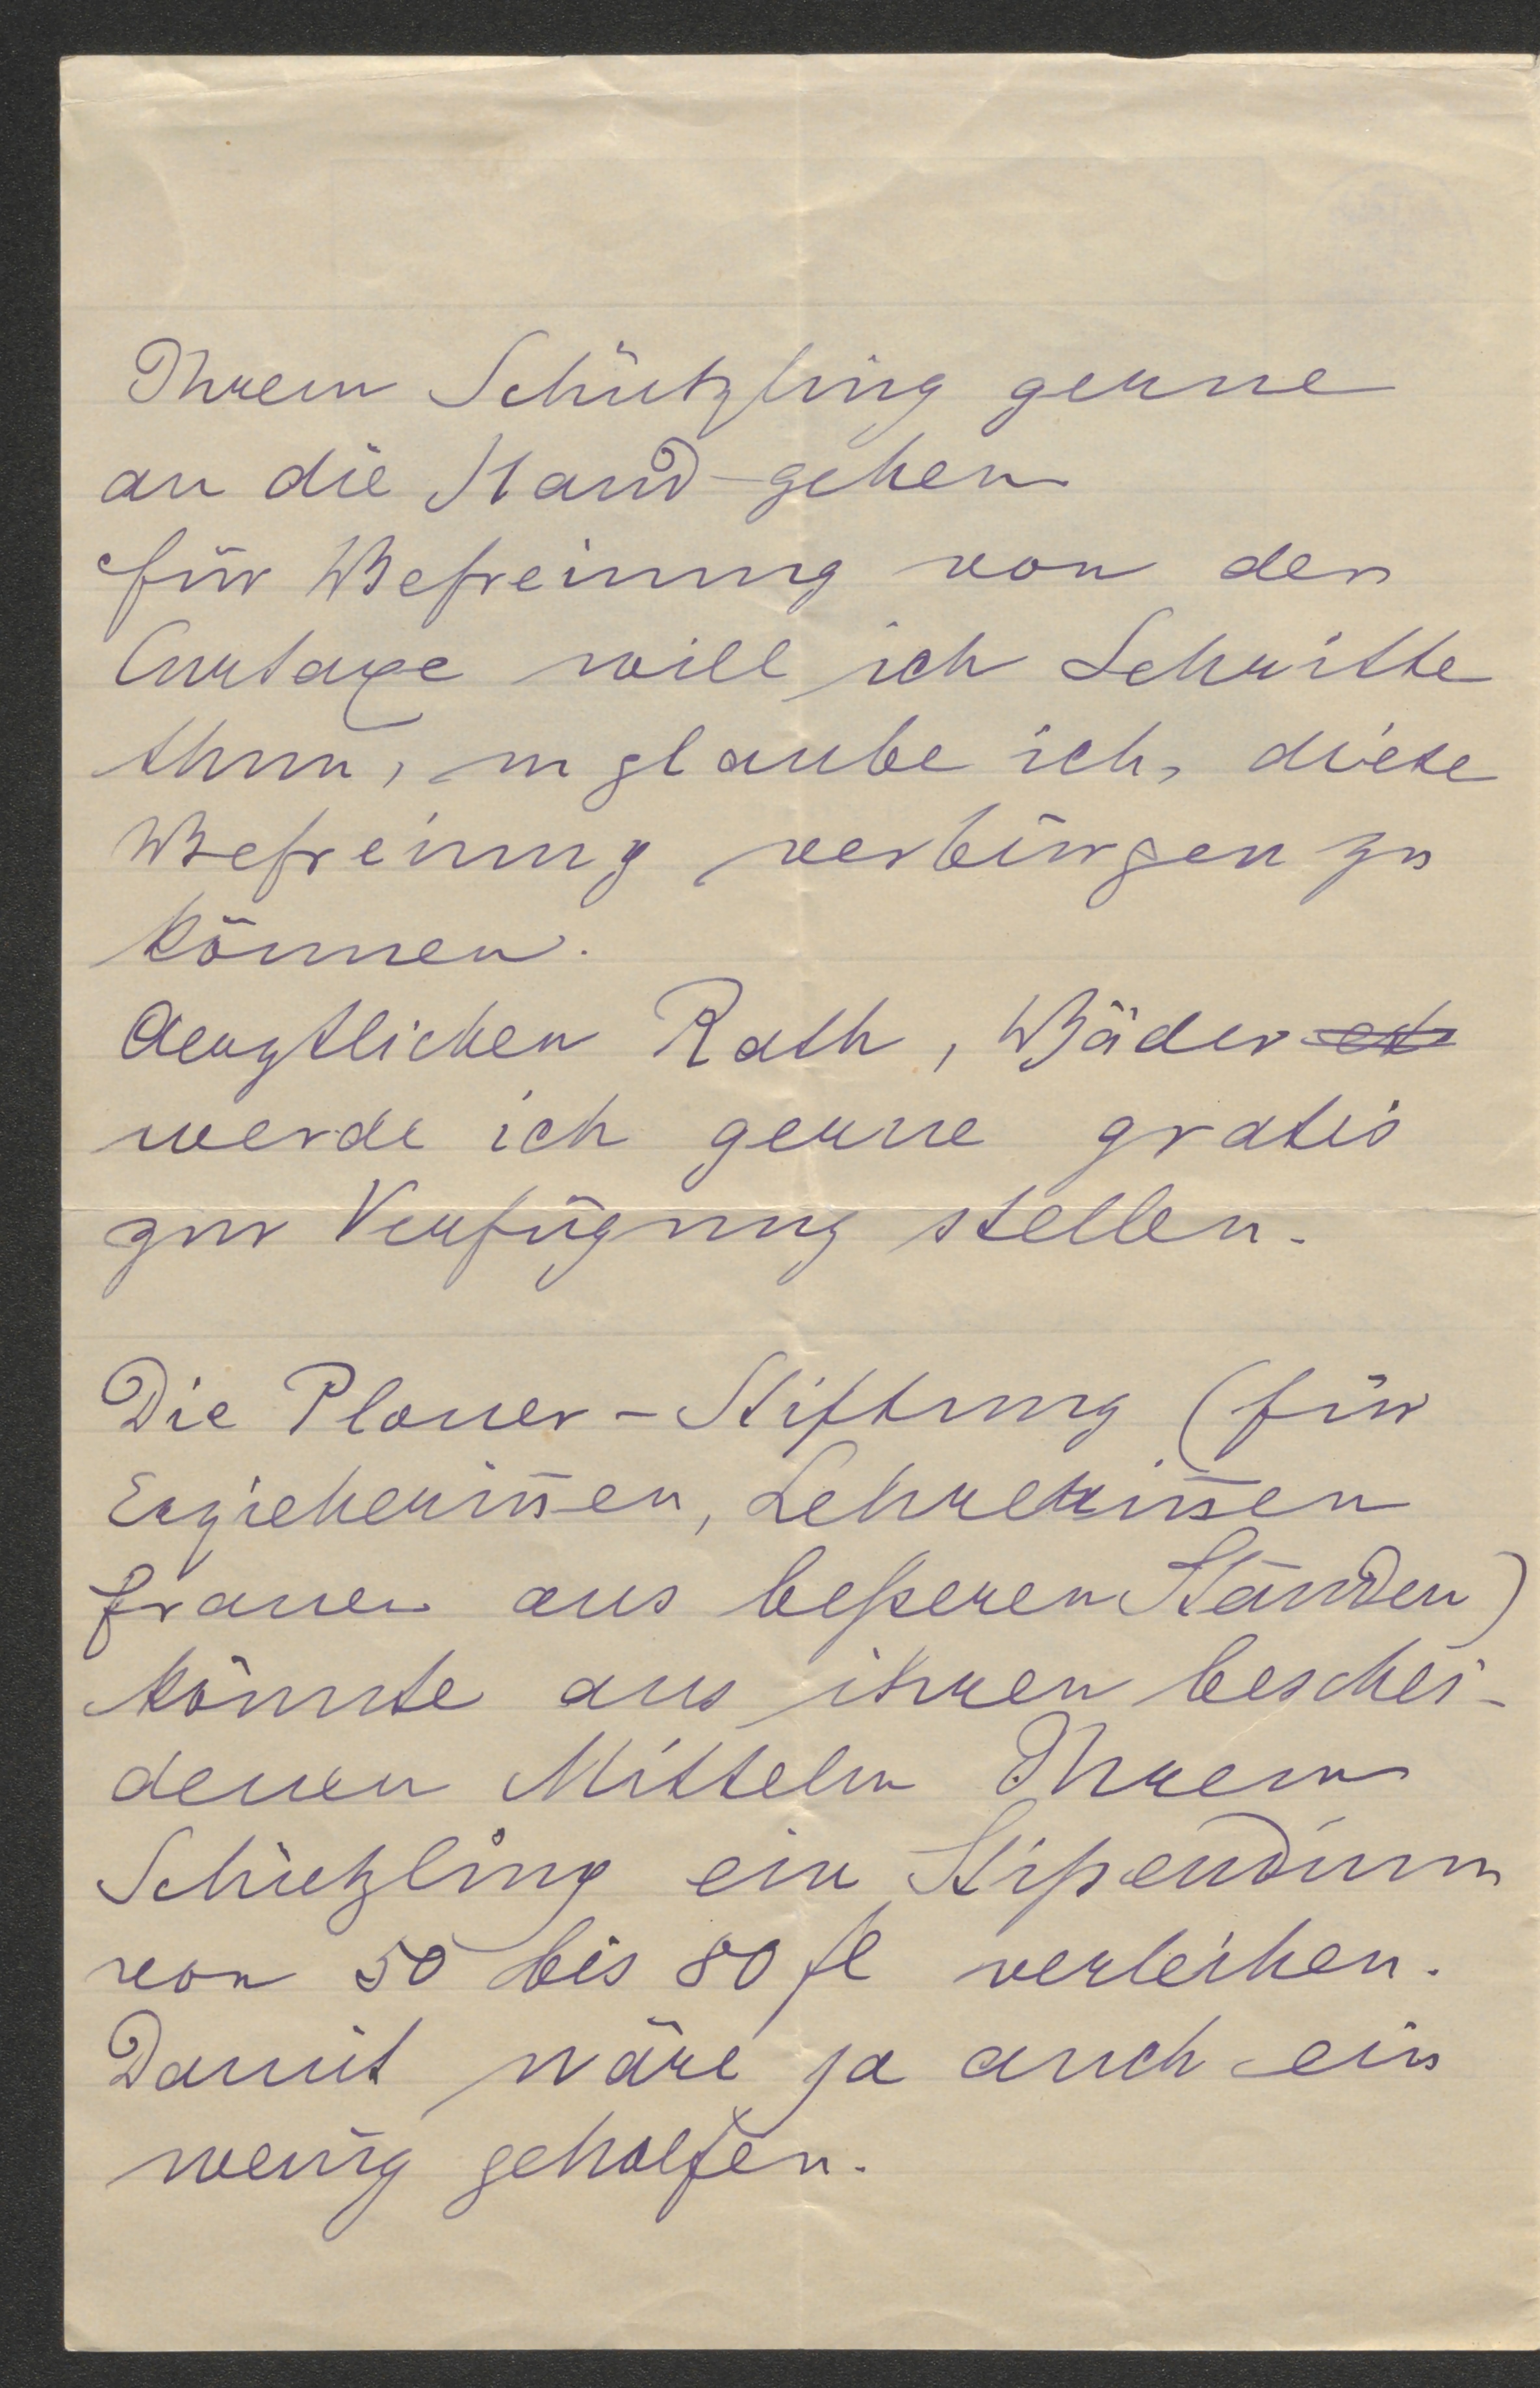 Ihrem Schützling gerne
an die Hand gehen
für Befreiung von der
Curtaxe will ich Schritte
thun, u glaube ich, diese
Befreiung verbürgen zu
können.
Aerztlichen Rath, Bäder etc
werde ich gerne gratis
zur Verfügung stellen.
Die Planer-Stiftung (für
Erzieherin̄en, Lehrerin̄en
Frauen aus beßeren Ständen)
könnte aus ihren beschei-
denen Mitteln Ihrem
Schützling ein Stipendium
von 50 bis 80 fl verleihen.
Damit wäre ja auch ein
wenig geholfen.